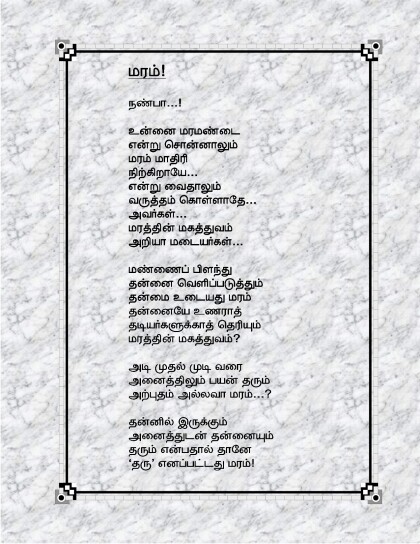 மரம்!
நண்பா...!
உன்னை மரமண்டை
என்று சொன்னாலும்
மரம் மாதிரி
நிற்கிறாயே...
என்று வைதாலும்
வருத்தம் கொள்ளாதே...
அவர்கள்...
மரத்தின் மகத்துவம்
அறியா மடையர்கள்...
மண்ணைப் பிளந்து
தன்னை வெளிப்படுத்தும்
தன்மை உடையது மரம்
தன்னையே உணராத்
தடியர்களுக்காத் தெரியும்
மரத்தின் மகத்துவம்?
அடி முதல் முடி வரை
அனைத்திலும் பயன் தரும்
அற்புதம் அல்லவா மரம்...?
தன்னில் இருக்கும்
அனைத்துடன் தன்னையும்
தரும் என்பதால் தானே
‘தரு’ எனப்பட்டது மரம்!